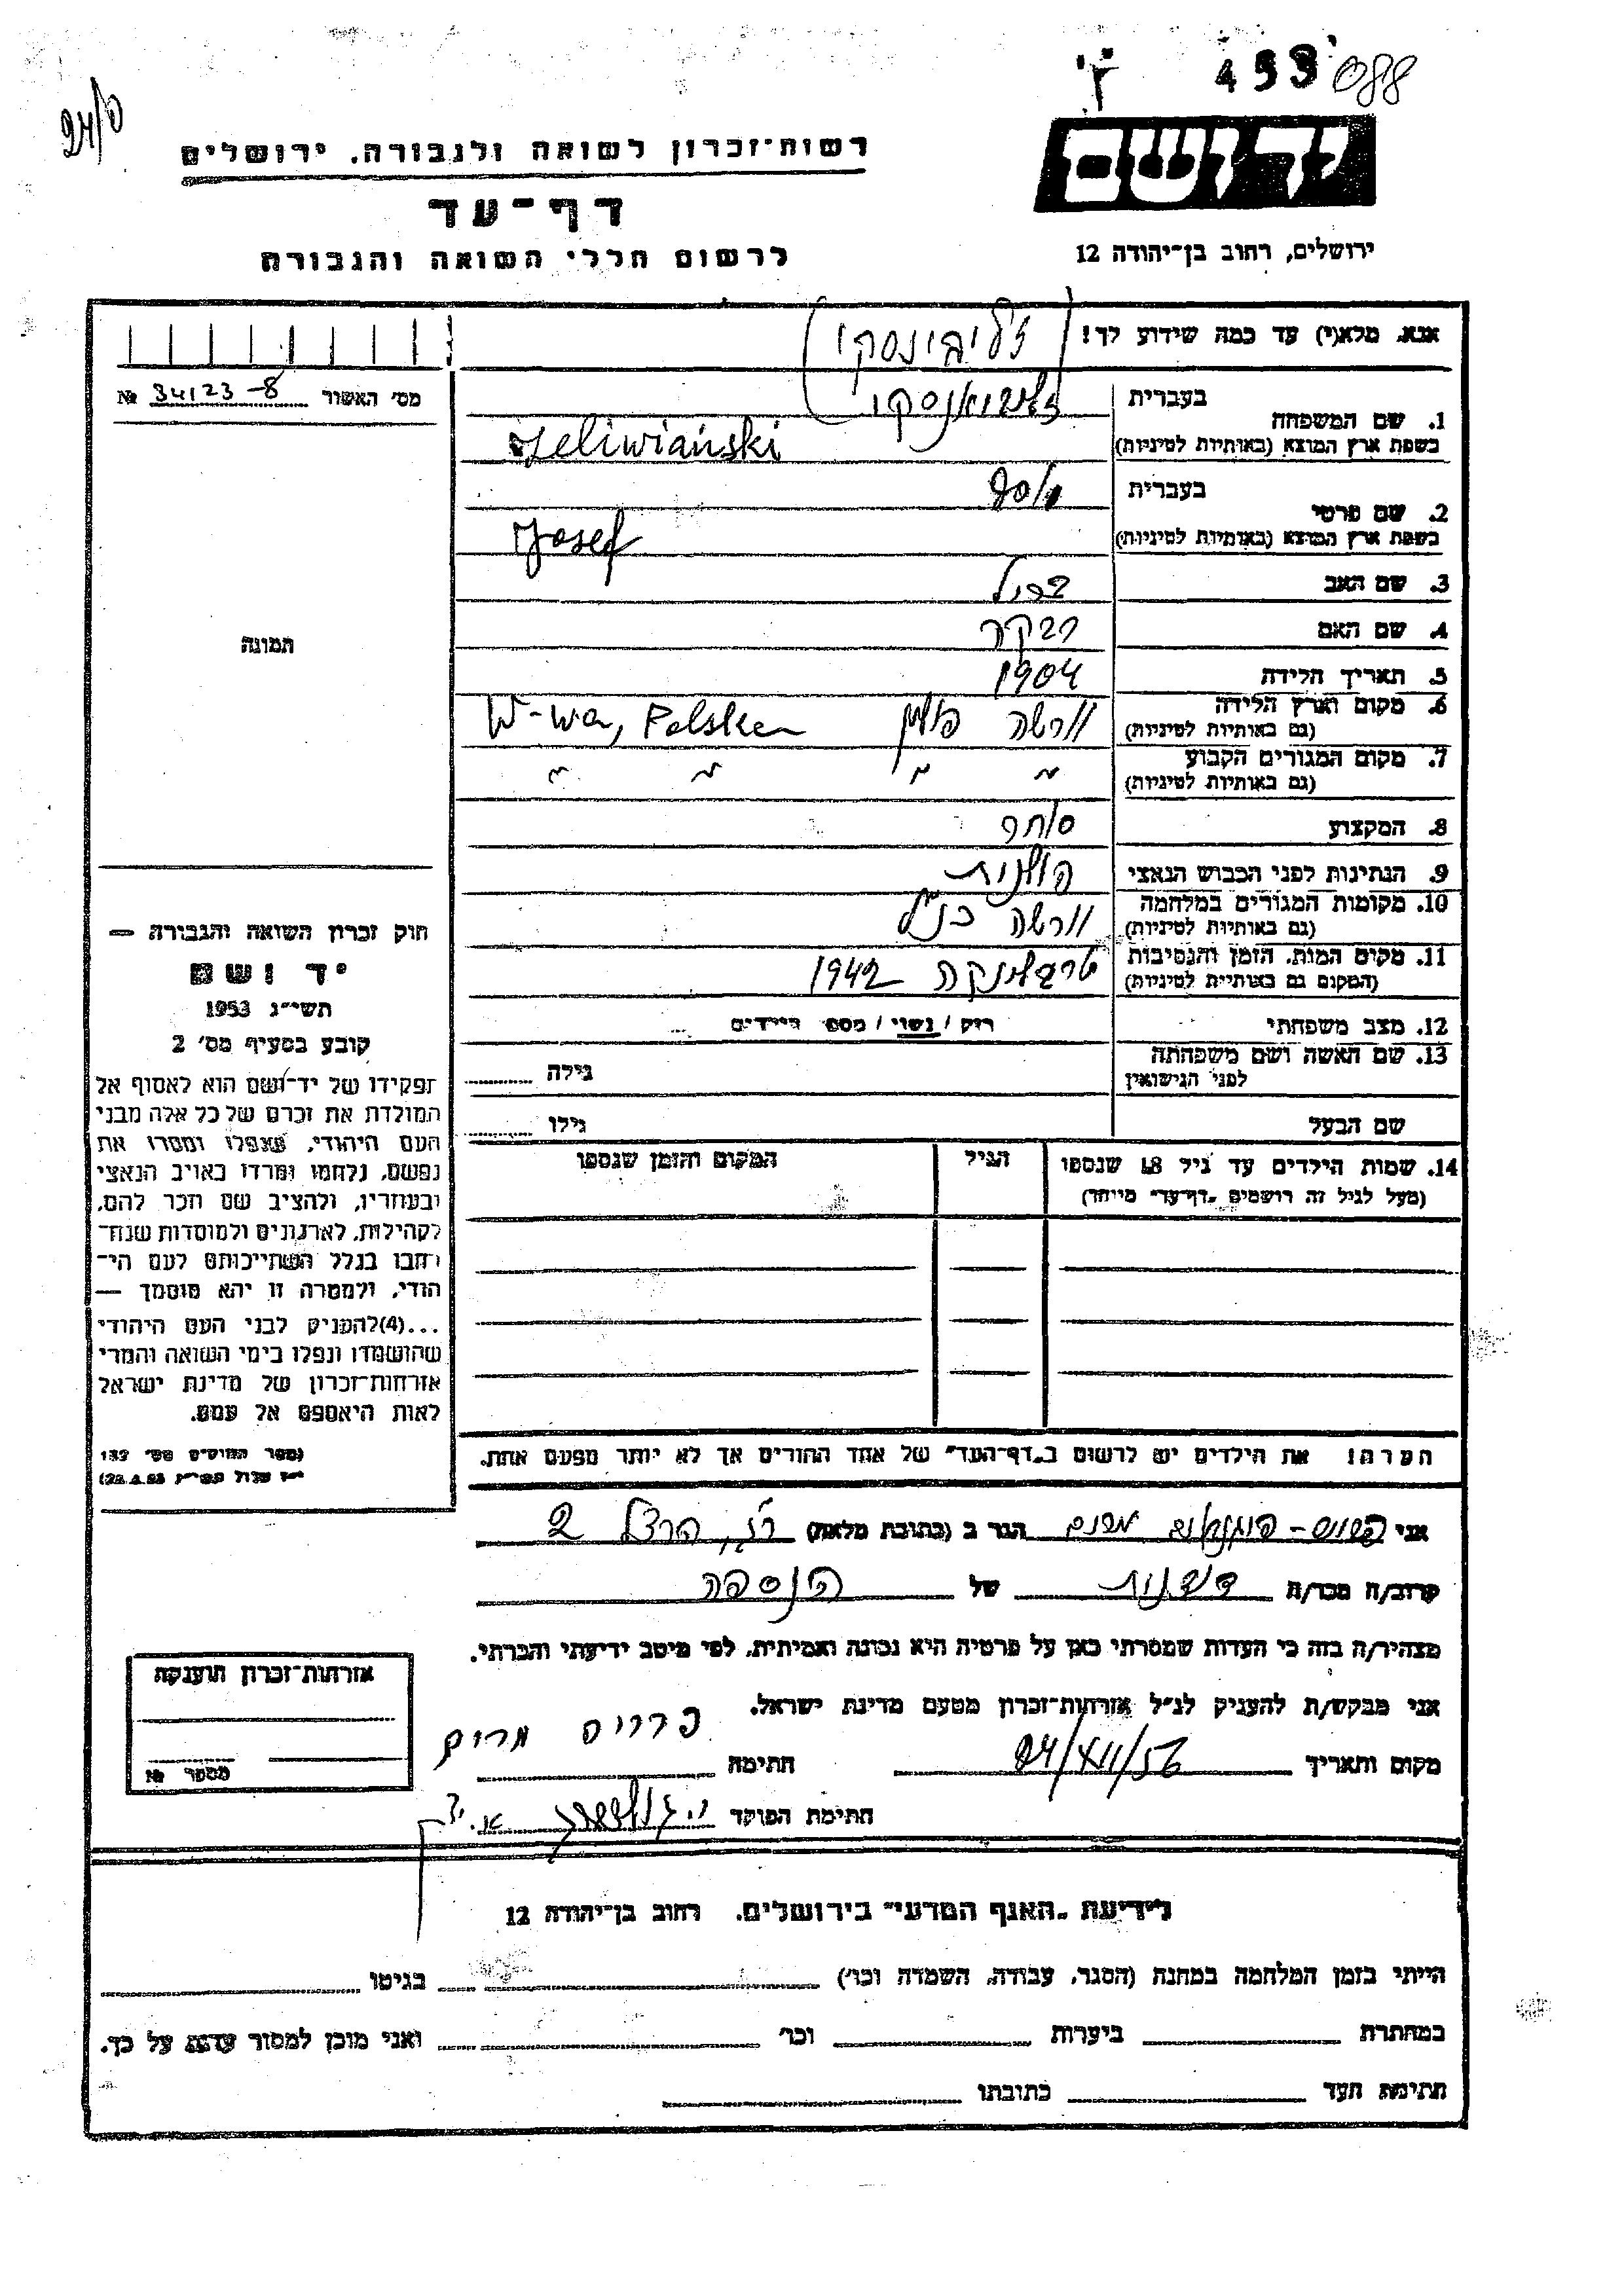 'ז' 453 088
24/ס
יד ושם
רשות־זכרון לשואה ולגבורה, ירושלים
דף־עד
לרשום חללי השואה והגבורה
ירושלים, רחוב בן־יהודה 12
אנא, מלא(י) עד כמה שידוע לך!
(ז'ליבינסקי
ז'ליוואנסקי)
מס' האשור № 34123-8
1. שם המשפחה
בעברית
בשפת ארץ המוצא (באותיות לטיניות) Zeliwiański
2. שם פרטי
בעברית יוסף
בשפת ארץ המוצא (באותיות לטיניות) Josef
3. שם האב
4. שם האם רבקה
5. תאריך הלידה 1904
6. מקום וארץ הלידה (גם באותיות לטיניות) וורשה פולין W-wa, Polska
7. מקום המגורים הקבוע (גם באותיות לטיניות) " " " "
8. המקצוע סוחר
9. הנתינות לפני הכבוש הנאצי פולנית
10. מקומות המגורים במלחמה (גם באותיות לטיניות) וורשה כנ"ל
11. מקום המות, הזמן והנסיבות (המקום גם באותיות לטיניות) טרבלינקה 1942
12. מצב משפחתי רווק / נשוי / מספר הילדים
13. שם האשה ושם משפחתה לפני הנישואין גילה
שם הבעל גילו
14. שמות הילדים עד גיל 18 שנספו (מעל לגיל זה רושמים "דף־עד" מיוחד) הגיל המקום והזמן שנספו
הערה! את הילדים יש לרשום ב"דף־העד" של אחד ההורים אך לא יותר מפעם אחת.
תמונה
חוק זכרון השואה והגבורה —
יד ושם
תשי"ג 1953
קובע בסעיף מס' 2
תפקידו של יד־ושם הוא לאסוף אל
המולדת את זכרם של כל אלה מבני
העם היהודי, שנפלו ומסרו את
נפשם, נלחמו ומרדו באויב הנאצי
ובעוזריו, ולהציב שם וזכר להם,
לקהילות, לארגונים ולמוסדות שנח־
רבו בגלל השתייכותם לעם הי־
הודי, ולמטרה זו יהא מוסמך —
...(4)להעניק לבני העם היהודי
שהושמדו ונפלו בימי השואה והמרי
אזרחות־זכרון של מדינת ישראל
לאות היאספם אל עמם.
(ספר החוקים מס' 132
אני מרים הגר ב (כתובת מלאה) ר"ג, הרצל 2
קרוב/ה מכר/ה של הנספה
מצהיר/ה בזה כי העדות שמסרתי כאן על פרטיה היא נכונה ואמיתית, לפי מיטב ידיעתי והכרתי.
אני מבקש/ת להעניק לנ"ל אזרחות־זכרון מטעם מדינת ישראל.
מקום ותאריך 24/XII/56 חתימה מרים
חתימת הפוקד
אזרחות־זכרון הוענקה
מספר №
לידיעת "האגף המדעי" בירושלים, רחוב בן־יהודה 12
הייתי בזמן המלחמה במחנה (הסגר, עבודה, השמדה וכו') בגיטו
במחתרת ביערות וכו' ואני מוכן למסור עדות על כך.
חתימת העד כתובתו